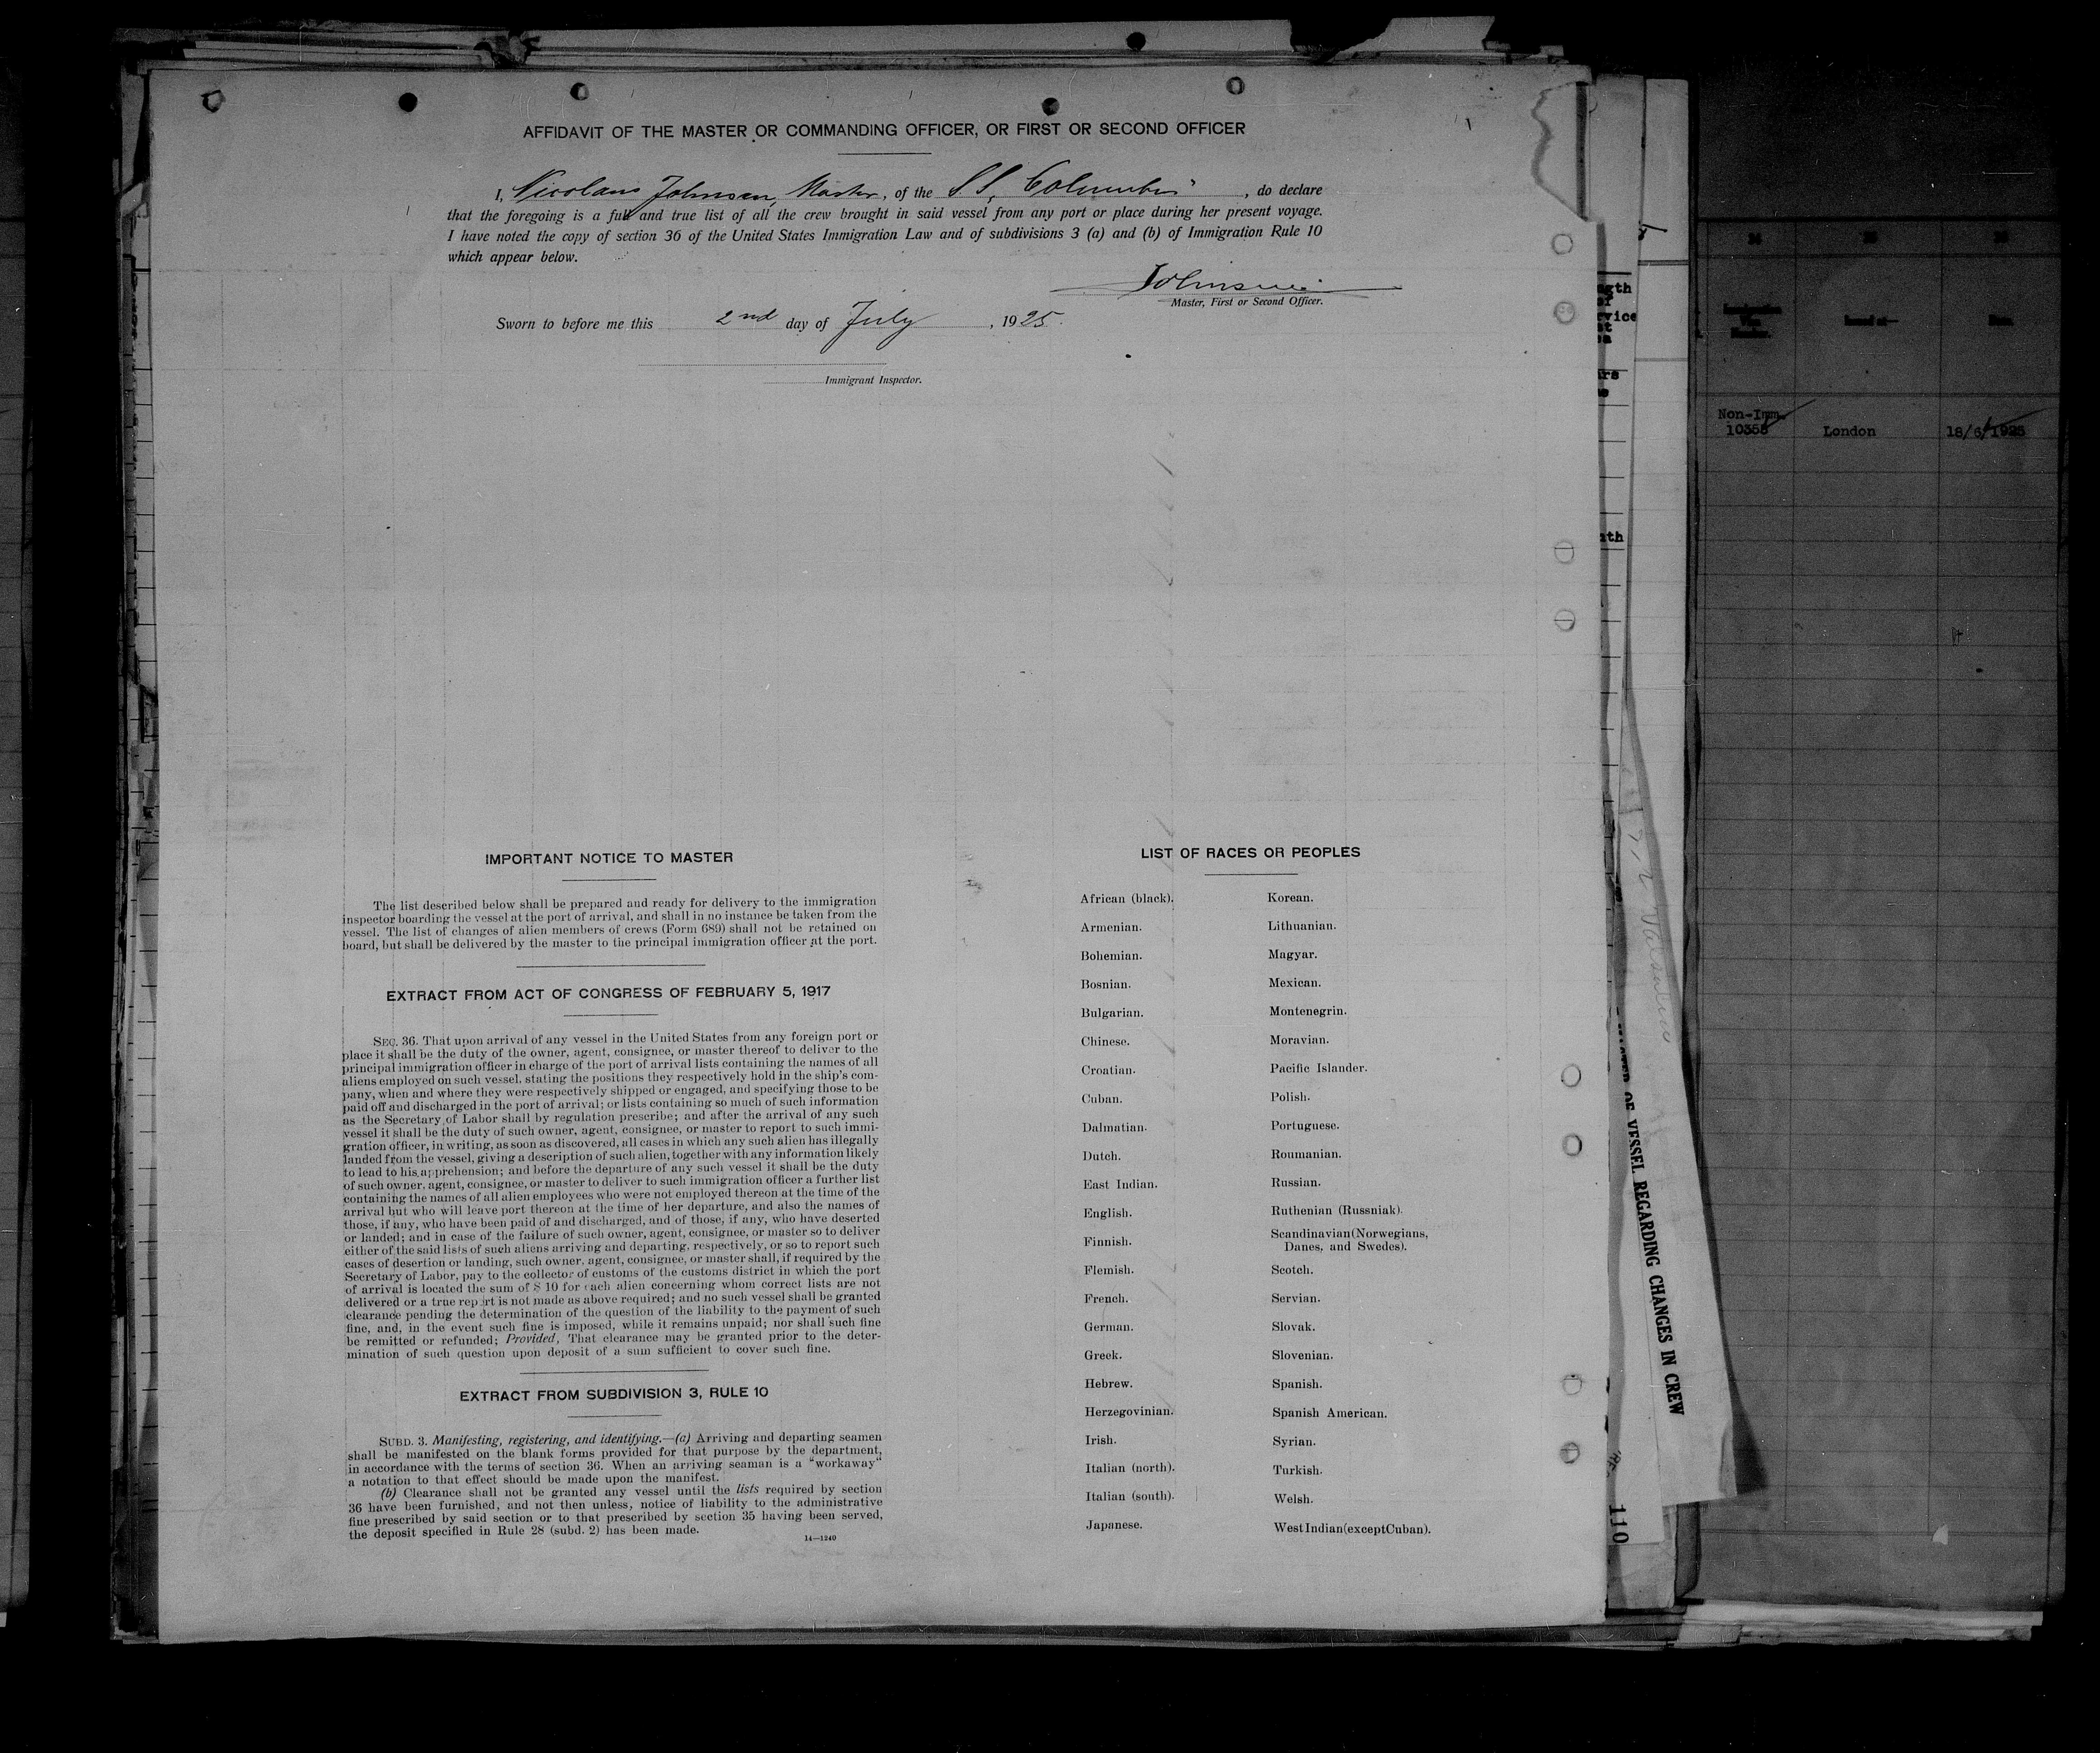 AFFIDAVIT OF THE MASTER OR COMMANDING OFFICER, OR FIRST OR SECOND OFFICER
I, Nicolaus Johnsen, Master, of the S.S. "Columbus", do declare
that the foregoing is a full and true list of all the crew brought in said vessel from any port or place during her present voyage.
I have noted the copy of section 36 of the United States Immigration Law and of subdivisions 3 (a) and (b) of Immigration Rule 10
which appear below.
Johnsen
Master, First or Second Officer.
Sworn to before me this 2nd day of July, 1925.
Immigrant Inspector.
IMPORTANT NOTICE TO MASTER
The list described below shall be prepared and ready for delivery to the immigration
inspector boarding the vessel at the port of arrival, and shall in no instance be taken from the
vessel. The list of changes of alien members of crews (Form 689) shall not be retained on
board, but shall be delivered by the master to the principal immigration officer at the port.
EXTRACT FROM ACT OF CONGRESS OF FEBRUARY 5, 1917
SEC. 36. That upon arrival of any vessel in the United States from any foreign port or
place it shall be the duty of the owner, agent, consignee, or master thereof to deliver to the
principal immigration officer in charge of the port of arrival lists containing the names of all
aliens employed on such vessel, stating the positions they respectively hold in the ship's com-
pany, when and where they were respectively shipped or engaged, and specifying those to be
paid off and discharged in the port of arrival; or lists containing so much of such information
as the Secretary of Labor shall by regulation prescribe; and after the arrival of any such
vessel it shall be the duty of such owner, agent, consignee, or master to report to such immi-
gration officer, in writing, as soon as discovered, all cases in which any such alien has illegally
landed from the vessel, giving a description of such alien, together with any information likely
to lead to his apprehension; and before the departure of any such vessel it shall be the duty
of such owner, agent, consignee, or master to deliver to such immigration officer a further list
containing the names of all alien employees who were not employed thereon at the time of the
arrival but who will leave port thereon at the time of her departure, and also the names of
those, if any, who have been paid of and discharged, and of those, if any, who have deserted
or landed; and in case of the failure of such owner, agent, consignee, or master so to deliver
either of the said lists of such aliens arriving and departing, respectively, or so to report such
cases of desertion or landing, such owner, agent, consignee, or master shall, if required by the
Secretary of Labor, pay to the collector of customs of the customs district in which the port
of arrival is located the sum of $ 10 for each alien concerning whom correct lists are not
delivered or a true report is not made as above required; and no such vessel shall be granted
clearance pending the determination of the question of the liability to the payment of such
fine, and, in the event such fine is imposed, while it remains unpaid; nor shall such fine
be remitted or refunded; Provided, That clearance may be granted prior to the deter-
mination of such question upon deposit of a sum sufficient to cover such fine.
EXTRACT FROM SUBDIVISION 3, RULE 10
SUBD. 3. Manifesting, registering, and identifying.—(a) Arriving and departing seamen
shall be manifested on the blank forms provided for that purpose by the department,
in accordance with the terms of section 36. When an arriving seaman is a "workaway"
a notation to that effect should be made upon the manifest.
(b) Clearance shall not be granted any vessel until the lists required by section
36 have been furnished, and not then unless, notice of liability to the administrative
fine prescribed by said section or to that prescribed by section 35 having been served,
the deposit specified in Rule 28 (subd. 2) has been made.
14—1240
LIST OF RACES OR PEOPLES
African (black).
Armenian.
Bohemian.
Bosnian.
Bulgarian.
Chinese.
Croatian.
Cuban.
Dalmatian.
Dutch.
East Indian.
English.
Finnish.
Flemish.
French.
German.
Greek.
Hebrew.
Herzegovinian.
Irish.
Italian (north).
Italian (south).
Japanese.
Korean.
Lithuanian.
Magyar.
Mexican.
Montenegrin.
Moravian.
Pacific Islander.
Polish.
Portuguese.
Roumanian.
Russian.
Ruthenian (Russniak).
Scandinavian (Norwegians,
Danes, and Swedes).
Scotch.
Servian.
Slovak.
Slovenian.
Spanish.
Spanish American.
Syrian.
Turkish.
Welsh.
West Indian (except Cuban).
OF VESSEL REGARDING CHANGES IN CREW
110
Non-Imm.
10358
London
18/6/1925